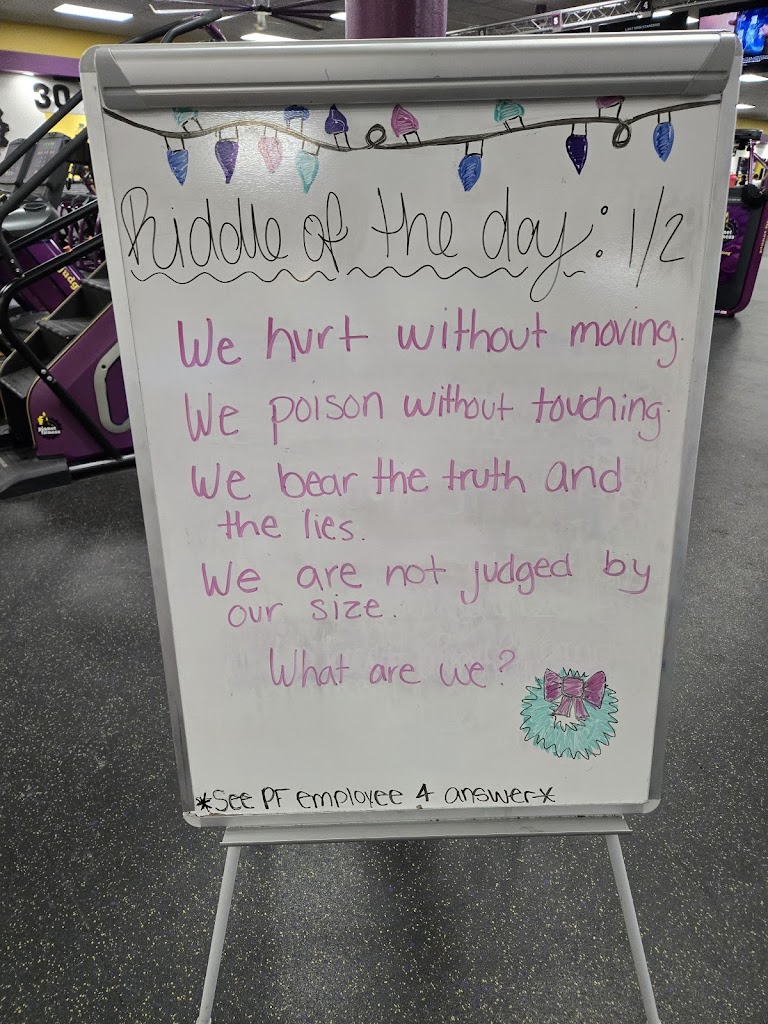 30
Riddle of the day: 1/2
We hurt without moving.
We poison without touching.
We bear the truth and
the lies.
We are not judged by
our size.
What are we?
*See PF employee 4 answer*
planet fitness
judg